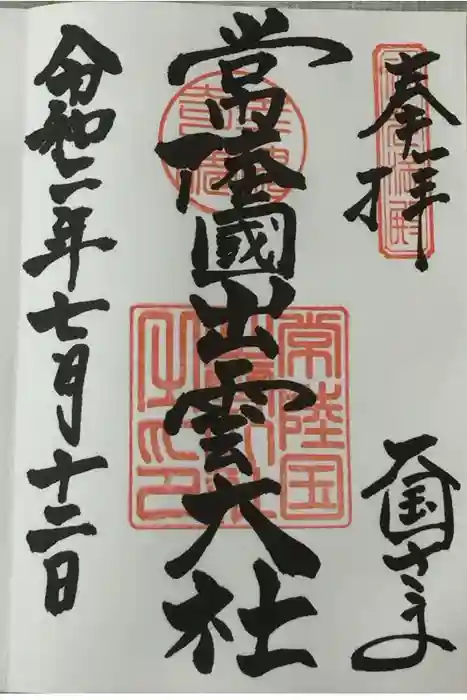 奉拝
大国さま
常陸國出雲大社
令和二年七月十二日
常陸国
之印